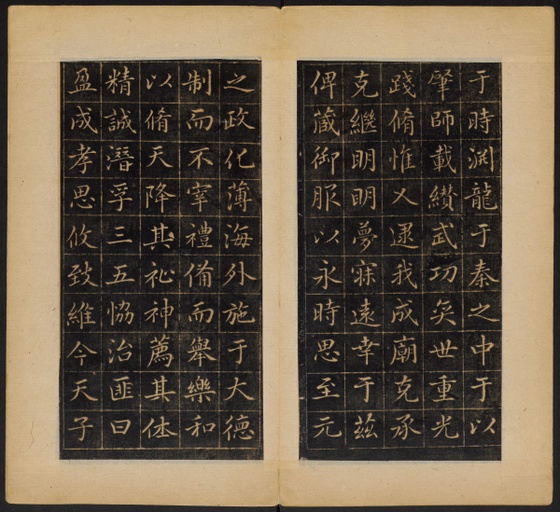 于時淵龍于秦之中于以
肇師載纘武功奕世重光
踐脩惟乂逮我成廟克承
克繼明明夢寐遠幸于茲
俾藏御服以永時思至元
之政化薄海外施于大德
制而不宰禮備而舉樂和
以脩天降其祉神薦其休
精誠潛孚三五協治匪曰
盈成孝思攸致維今天子